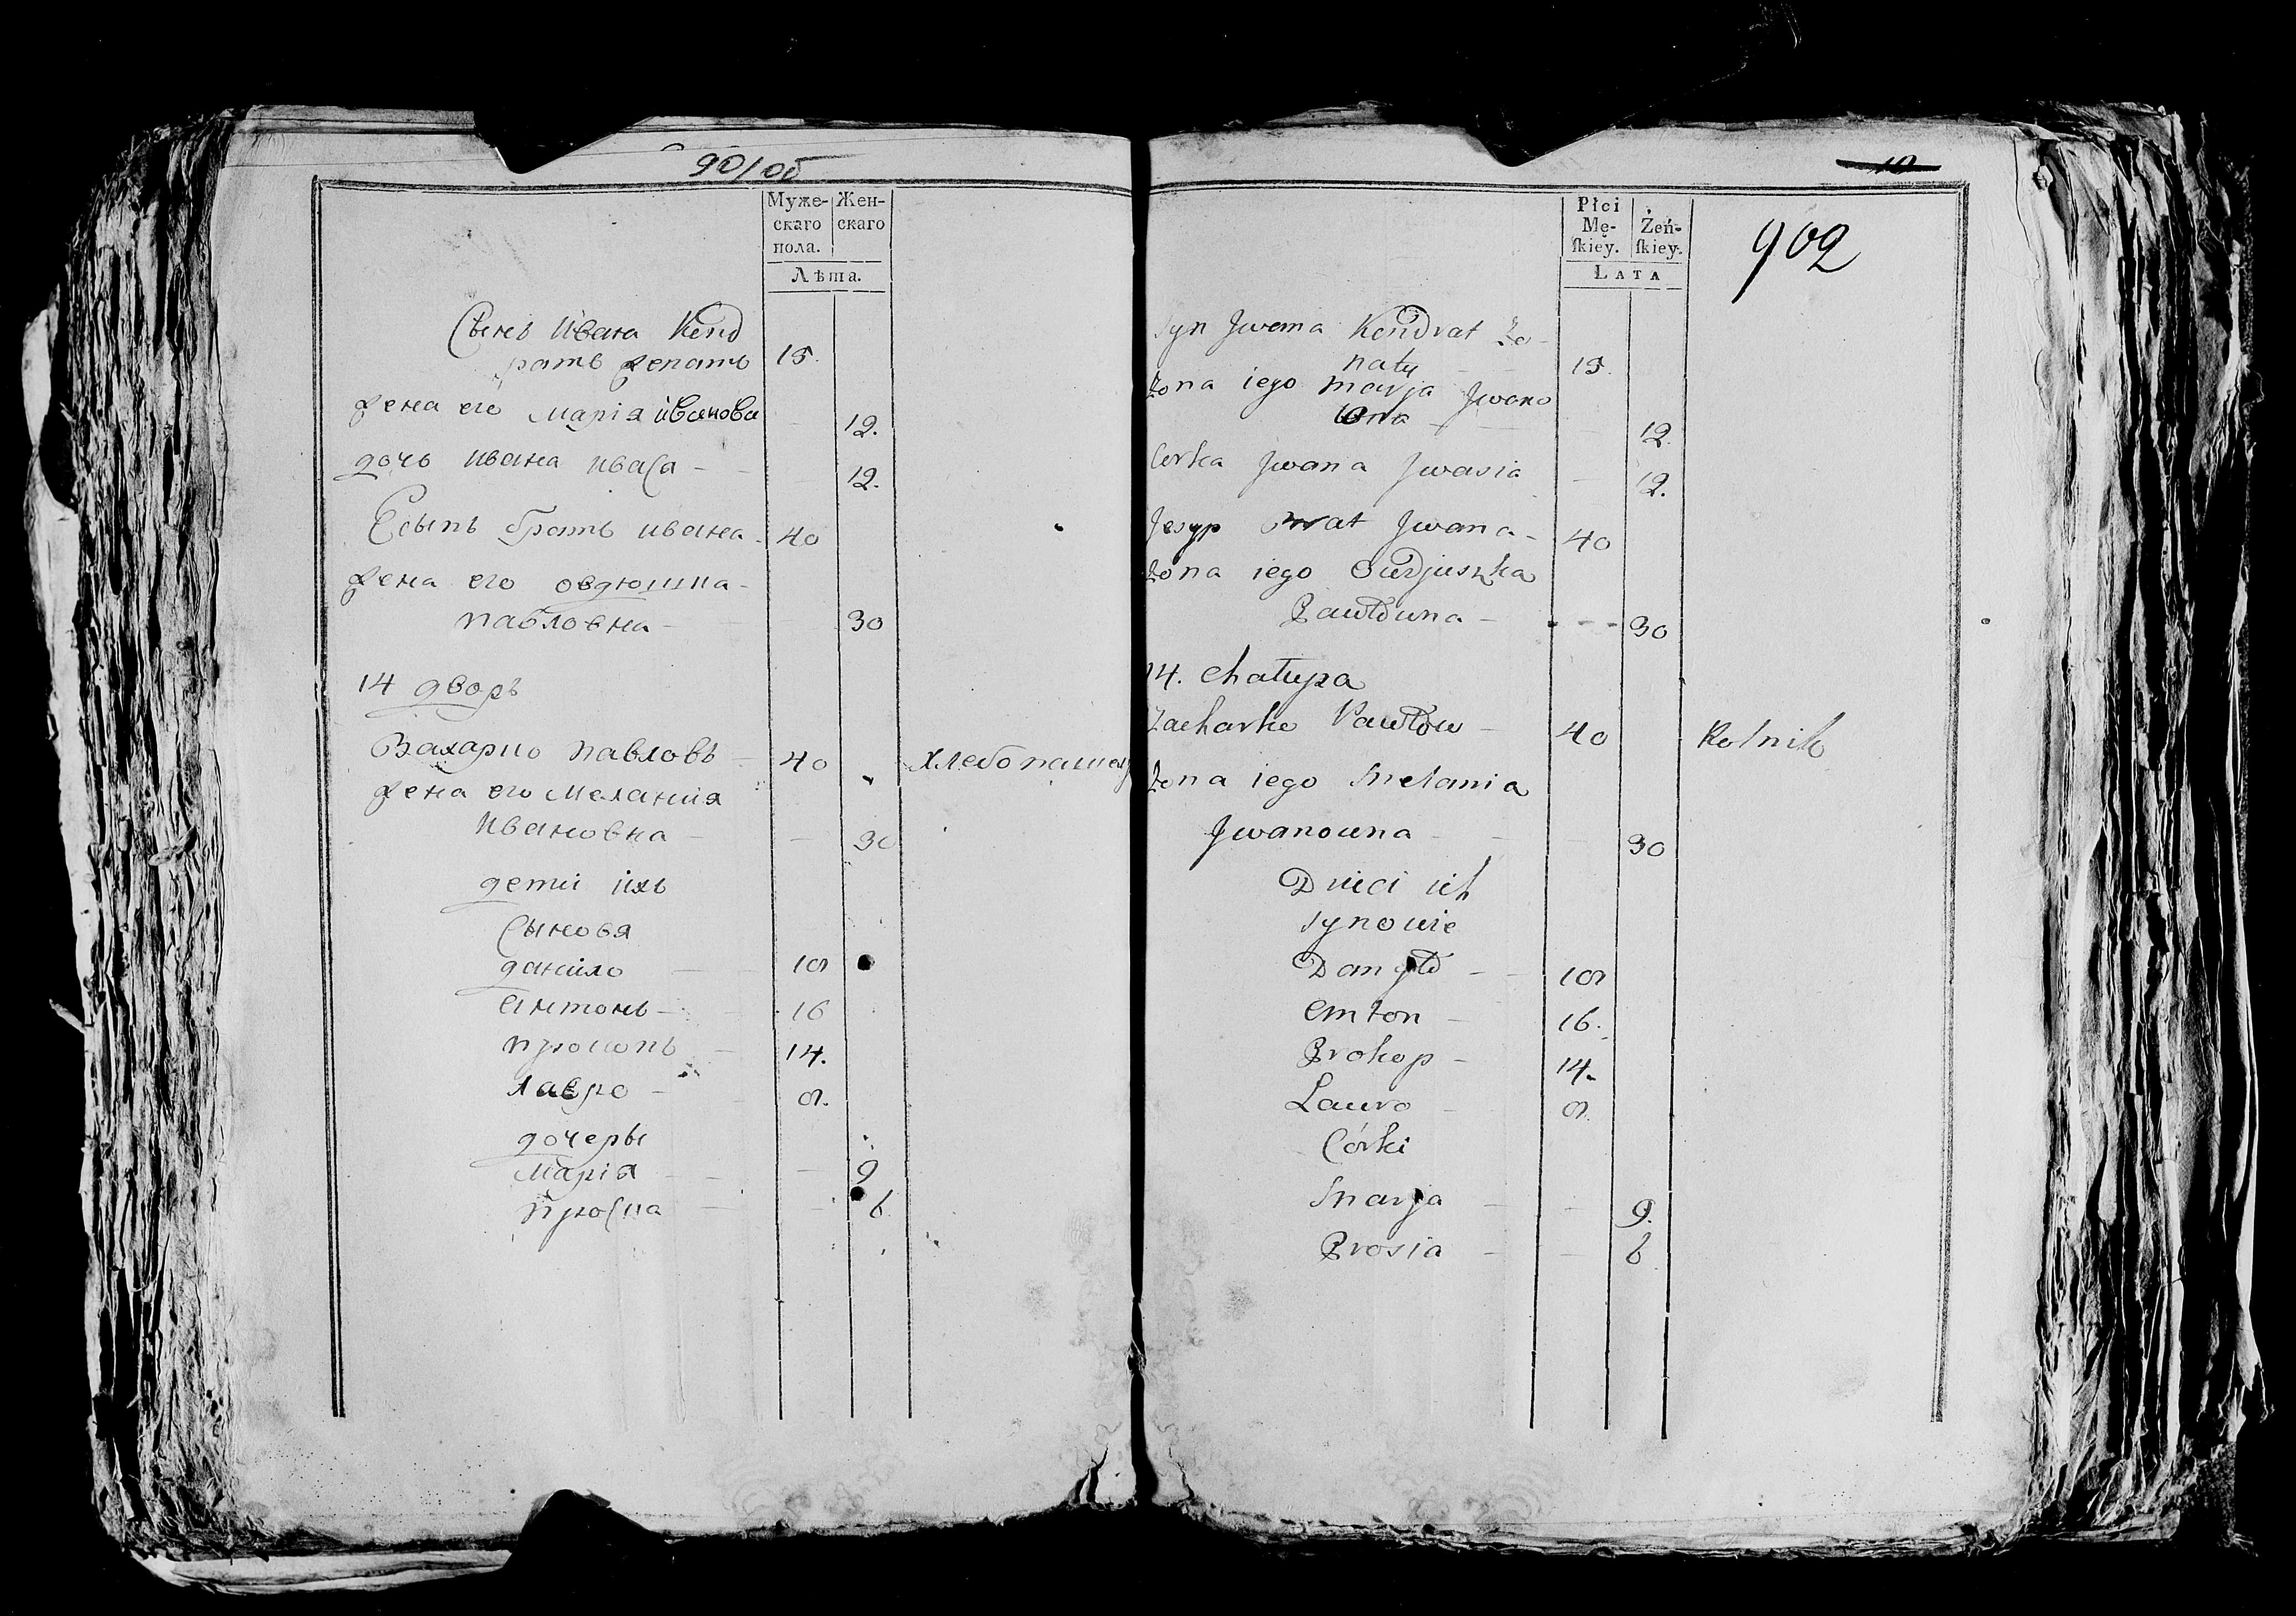 90/об
Муже-
скаго
пола.
Жен-
скаго
Лѣта.
Сынъ Ивана Кенд
ратъ женатъ 15.
жена его Марія Иванова 12.
дочь Ивана Иваса - 12.
Есыпъ братъ Ивана - 40
жена его Овдюшка -
Павловна - 30
14 дворъ
Захарко Павловъ - 40 хлебопашец
жена его Мелания
Ивановна - 30
дети ихъ
Сыновя
данило 18
антонъ - 16
прокопъ - 14.
лавро - 8.
дочеры
Марія 9
проска 6.
10
902
Płci
Mę-
skiey.
Żeń-
skiey.
LATA
Syn Jwana Kondrat Żo-
naty 15
Żona iego Marja Jwano
wna 12.
Corka Jwana Jwasia 12.
Jesyp Brat Jwana - 40
Żona iego Owdjuszka
Pawłowna - 30
14. Chałupa
Zacharko Pawłow - 40 Rolnik
Żona iego Melania
Jwanowna 30
Dzieci ich
Synowie
Danyło - 18
Anton - 16.
Prokop - 14.
Lawro - 8.
Córki
Marja - 9.
Prosia - 6